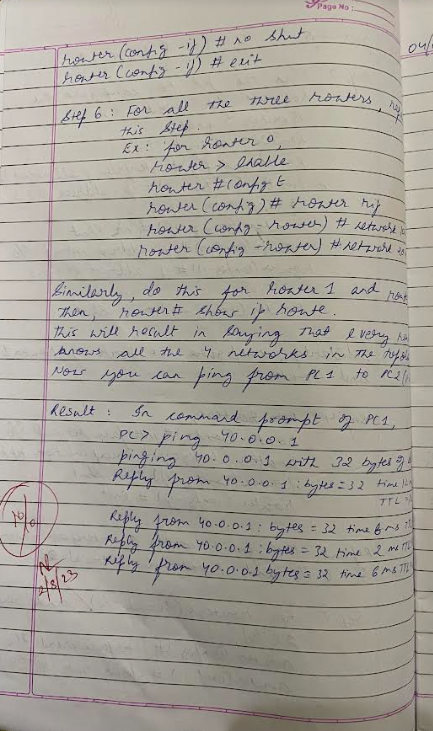 Page No :
04/
Router (config -if) # no shut
Router (config -if) # exit
Step 6 : For all the three routers,
this step.
Ex : for Router 0,
Router > enable
Router # config t
Router (config) # Router rip
Router (config - router) # network
Router (config - router) # network
Similarly, do this for Router 1 and
Then, router# show ip route.
This will result in saying that every
knows all the 4 networks in the
Now you can ping from PC1 to PC2
Result : In command prompt of PC1,
PC> ping 40.0.0.1
pinging 40.0.0.1 with 32 bytes of
Reply from 40.0.0.1 : bytes = 32 time
TTL
Reply from 40.0.0.1 : bytes = 32 time 6 ms
Reply from 40.0.0.1 : bytes = 32 time 2 ms TTL
Reply from 40.0.0.1 bytes = 32 time 6 ms TTL
10/10
2/8/23